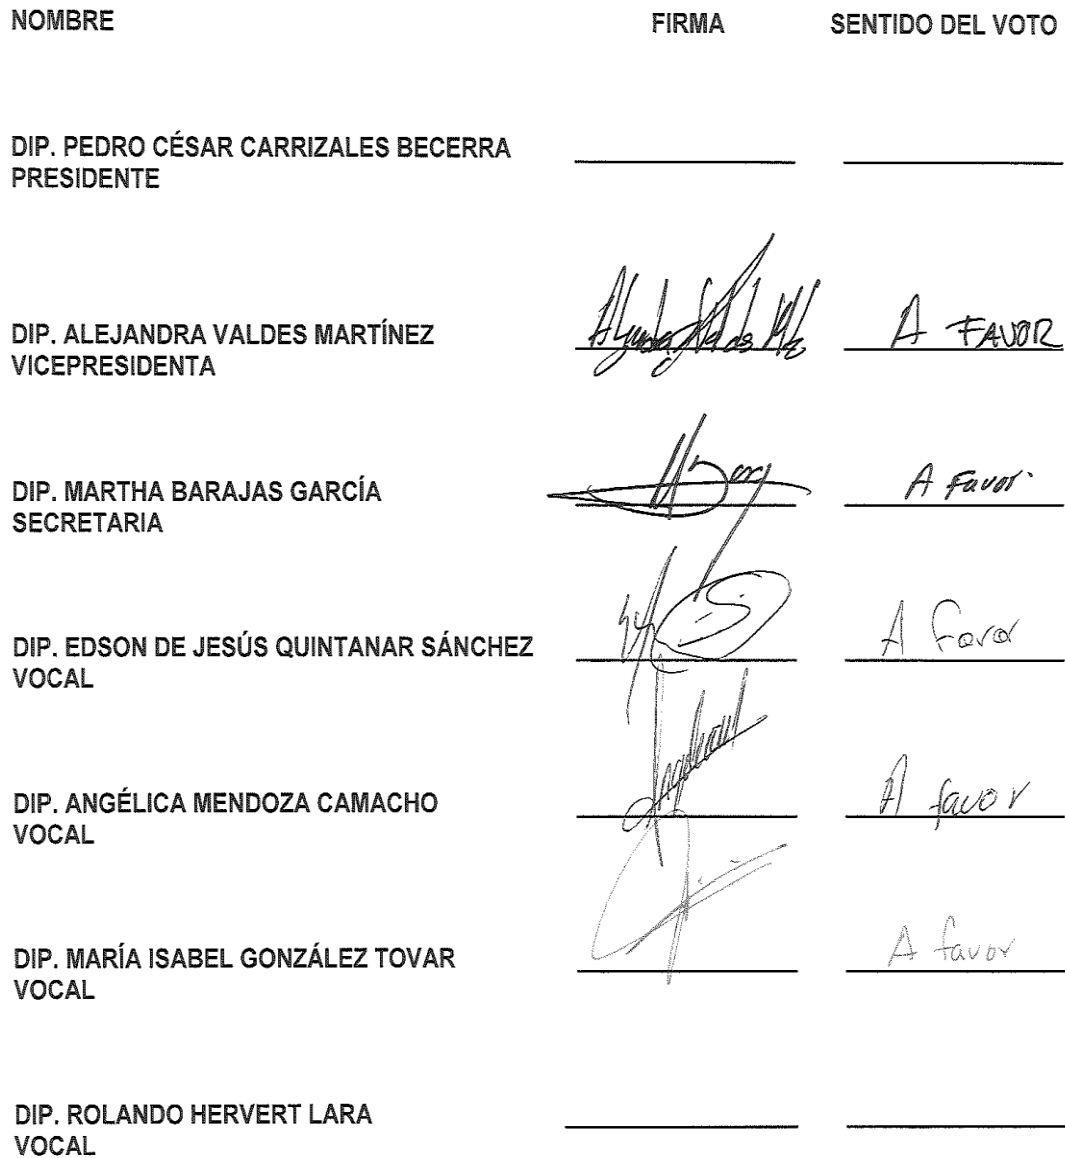 NOMBRE FIRMA SENTIDO DEL VOTO
DIP. PEDRO CÉSAR CARRIZALES BECERRA
PRESIDENTE
DIP. ALEJANDRA VALDES MARTÍNEZ A FAVOR
VICEPRESIDENTA
DIP. MARTHA BARAJAS GARCÍA A Favor
SECRETARIA
DIP. EDSON DE JESÚS QUINTANAR SÁNCHEZ A Favor
VOCAL
DIP. ANGÉLICA MENDOZA CAMACHO A favor
VOCAL
DIP. MARÍA ISABEL GONZÁLEZ TOVAR A favor
VOCAL
DIP. ROLANDO HERVERT LARA
VOCAL